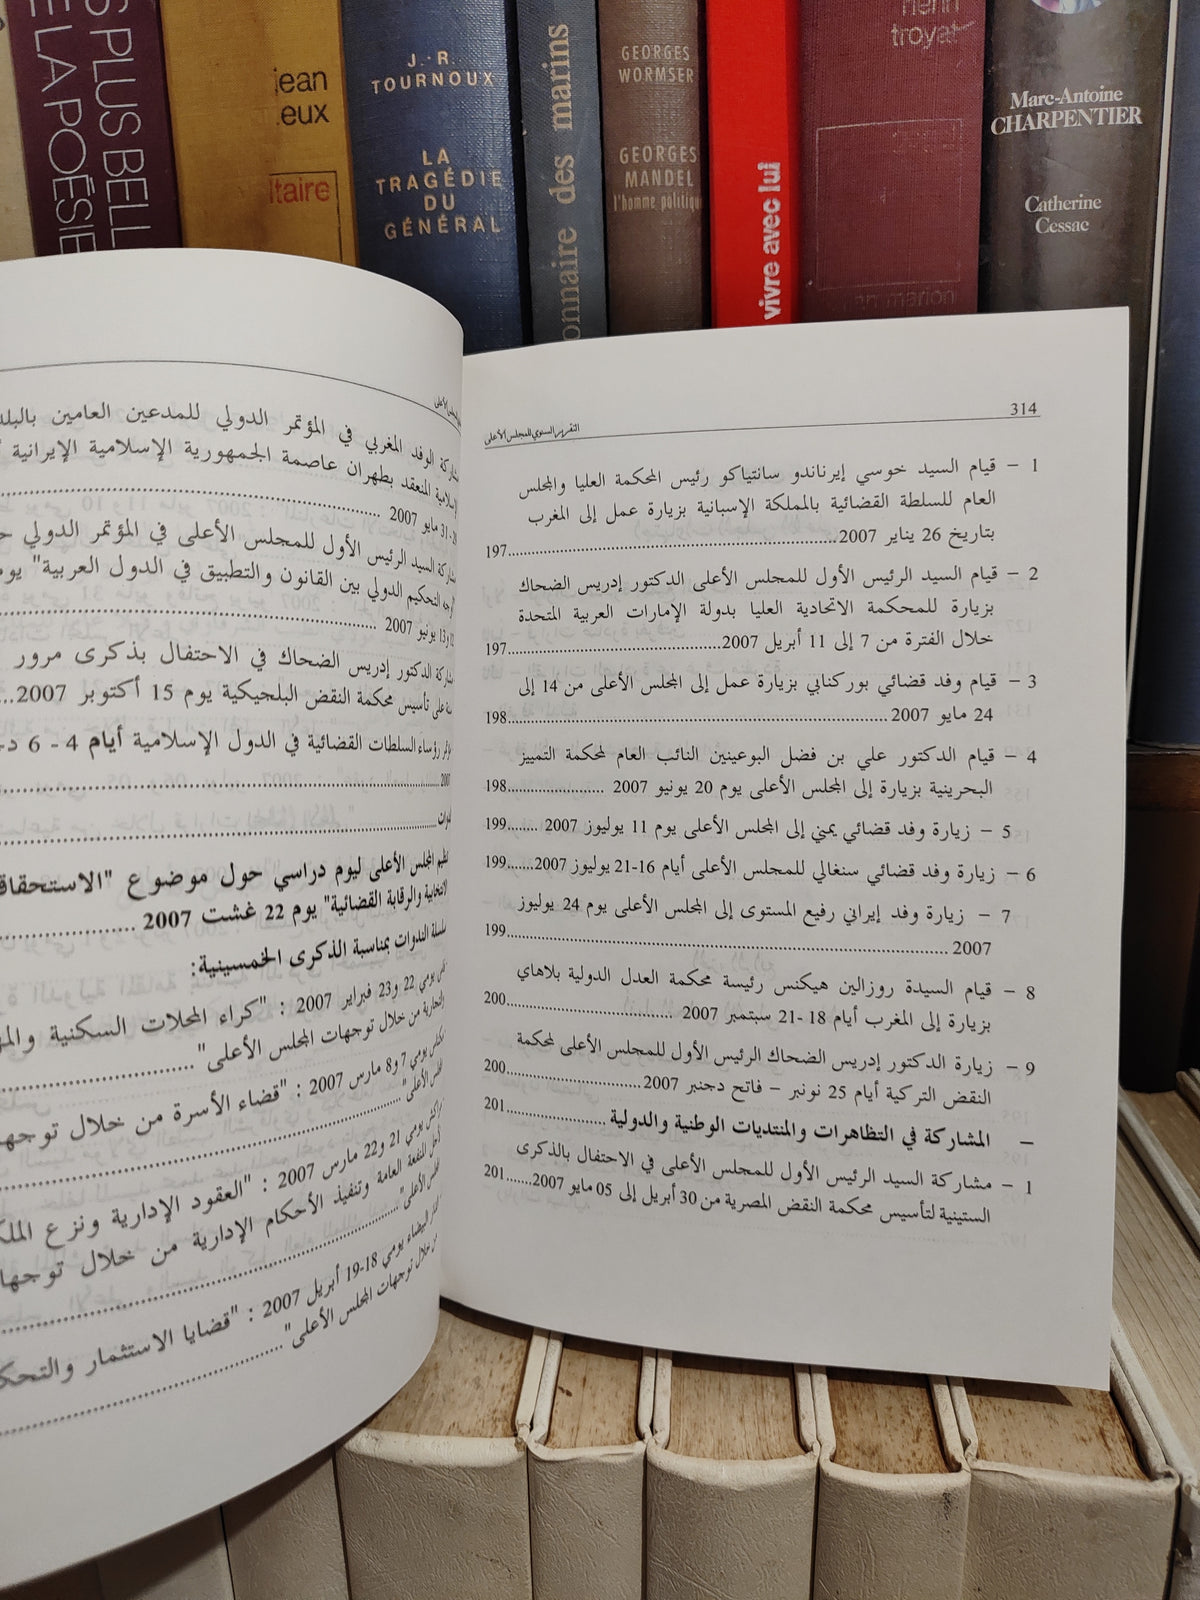 S PLUS BELL
E LA POÉSIE
jean
eux
ltaire
J.-R.
TOURNOUX
LA
TRAGÉDIE
DU
GÉNÉRAL
onnaire des marins
GEORGES
WORMSER
GEORGES
MANDEL
l'homme politique
vivre avec lui
henri
troyat
Marc-Antoine
CHARPENTIER
Catherine
Cessac
314
التقرير السنوي للمجلس الأعلى
1 – قيام السيد خوسي إيرناندو سانتياكو رئيس المحكمة العليا والمجلس
العام للسلطة القضائية بالمملكة الإسبانية بزيارة عمل إلى المغرب
بتاريخ 26 يناير 2007..........197
2 – قيام السيد الرئيس الأول للمجلس الأعلى الدكتور إدريس الضحاك
بزيارة للمحكمة الاتحادية العليا بدولة الإمارات العربية المتحدة
خلال الفترة من 7 إلى 11 أبريل 2007..........197
3 – قيام وفد قضائي بوركنابي بزيارة عمل إلى المجلس الأعلى من 14 إلى
24 مايو 2007..........198
4 – قيام الدكتور علي بن فضل البوعينين النائب العام لمحكمة التمييز
البحرينية بزيارة إلى المجلس الأعلى يوم 20 يونيو 2007 ..........198
5 – زيارة وفد قضائي يمني إلى المجلس الأعلى يوم 11 يوليوز 2007 ........199
6 – زيارة وفد قضائي سنغالي للمجلس الأعلى أيام 16-21 يوليوز 2007.......199
7 – زيارة وفد إيراني رفيع المستوى إلى المجلس الأعلى يوم 24 يوليوز
2007 ..........199
8 – قيام السيدة روزالين هيكنس رئيسة محكمة العدل الدولية بلاهاي
بزيارة إلى المغرب أيام 18 -21 سبتمبر 2007 ..........200
9 – زيارة الدكتور إدريس الضحاك الرئيس الأول للمجلس الأعلى لمحكمة
النقض التركية أيام 25 نونبر – فاتح دجنبر 2007..........200
– المشاركة في التظاهرات والمنتديات الوطنية والدولية..........201
1 – مشاركة السيد الرئيس الأول للمجلس الأعلى في الاحتفال بالذكرى
الستينية لتأسيس محكمة النقض المصرية من 30 أبريل إلى 05 مايو 2007......201
الوفد المغربي في المؤتمر الدولي للمدعين العامين
المنعقد بطهران عاصمة الجمهورية الإسلامية الإيرانية
31 مايو 2007 ..........
السيد الرئيس الأول للمجلس الأعلى في المؤتمر الدولي
التحكيم الدولي بين القانون والتطبيق في الدول العربية"
13 يونيو 2007 ..........
الدكتور إدريس الضحاك في الاحتفال بذكرى مرور
على تأسيس محكمة النقض البلجيكية يوم 15 أكتوبر 2007...
رؤساء السلطات القضائية في الدول الإسلامية أيام 4 - 6
2007 ..........
المجلس الأعلى ليوم دراسي حول موضوع
والرقابة القضائية" يوم 22 غشت 2007 ..........
سلسلة الندوات بمناسبة الذكرى الخمسينية:
يومي 22 و23 فبراير 2007 : "كراء المحلات السكنية
من خلال توجهات المجلس الأعلى"..........
يومي 7 و8 مارس 2007 : "قضاء الأسرة من خلال
الأعلى"..........
يومي 21 و22 مارس 2007 : "العقود الإدارية ونزع
العامة وتنفيذ الأحكام الإدارية من خلال
الأعلى"..........
البيضاء يومي 18-19 أبريل 2007 : "قضايا الاستثمار
خلال توجهات المجلس الأعلى"..........